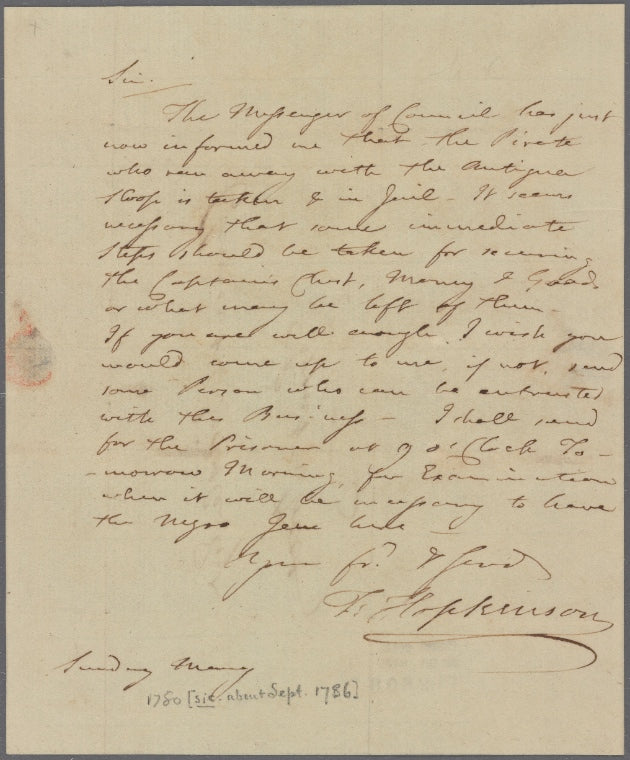 Sir.
The Messenger of Council has just
now informed me that the Pirate
who ran away with the Antigua
Sloop is taken & in Jail - It seems
necessary that some immediate
Steps should be taken for securing
the Captain's Chest, Money & Goods
or what may be left of them -
If you are well enough, I wish you
would come up to me, if not, send
some Person who can be entrusted
with this Business - I shall send
for the Prisoner at 9 o'Clock To-
-morrow Morning, for Examination
when it will be necessary to have
the Negro here -
Your fr. & Servt
Fs Hopkinson
Sunday
1780 [sic. about Sept. 1786]